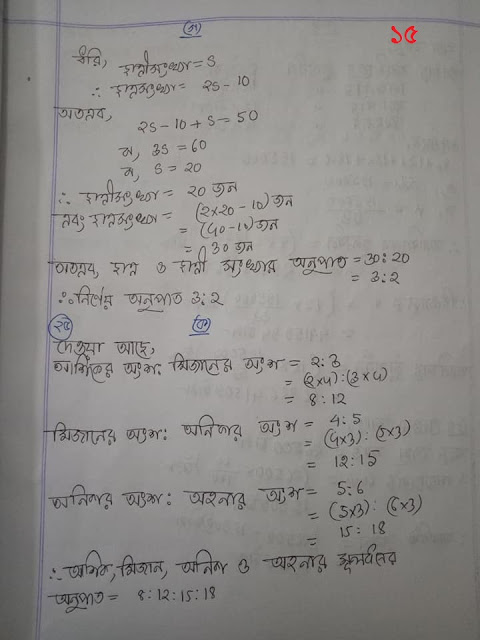 (গ)
১৫
ধরি, ছাত্রীসংখ্যা = S
∴ ছাত্রসংখ্যা = 2S - 10
অতএব,
2S - 10 + S = 50
বা, 3S = 60
বা, S = 20
∴ ছাত্রীসংখ্যা = 20 জন
এবং ছাত্রসংখ্যা = (2×20 - 10) জন
= (40 - 10) জন
= 30 জন
অতএব, ছাত্র ও ছাত্রী সংখ্যার অনুপাত = 30 : 20
= 3 : 2
∴ নির্ণেয় অনুপাত 3 : 2
২৫ (ক)
দেওয়া আছে,
আশিকের অংশ : মিজানের অংশ = 2 : 3
= (2×4) : (3×4)
= 8 : 12
মিজানের অংশ : অনিকার অংশ = 4 : 5
= (4×3) : (5×3)
= 12 : 15
অনিকার অংশ : অহনার অংশ = 5 : 6
= (5×3) : (6×3)
= 15 : 18
∴ আশিক, মিজান, অনিকা ও অহনার মূলধনের
অনুপাত = 8 : 12 : 15 : 18